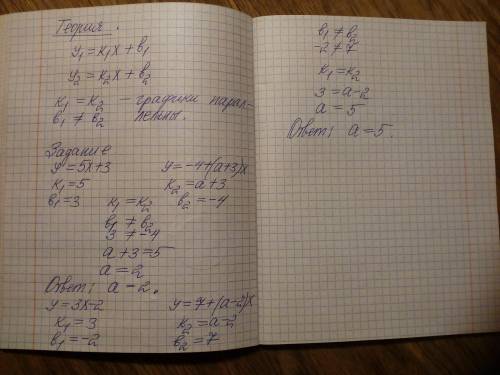 Теория.
y₁=k₁x+b₁
y₂=k₂x+b₂
k₁=k₂ – графики парал=
b₁≠b₂ лельны.
Задание
y=5x+3 y=-4+(a+3)x
k₁=5 k₂=a+3
b₁=3 k₁=k₂ b₂=-4
b₁≠b₂
3≠-4
a+3=5
a=2
Ответ: a-2.
y=3x-2 y=7+(a-2)x
k₁=3 k₂=a-2
b₁=-2 b₂=7
b₁≠b₂
-2≠7
k₁=k₂
3=a-2
a=5
Ответ: a=5